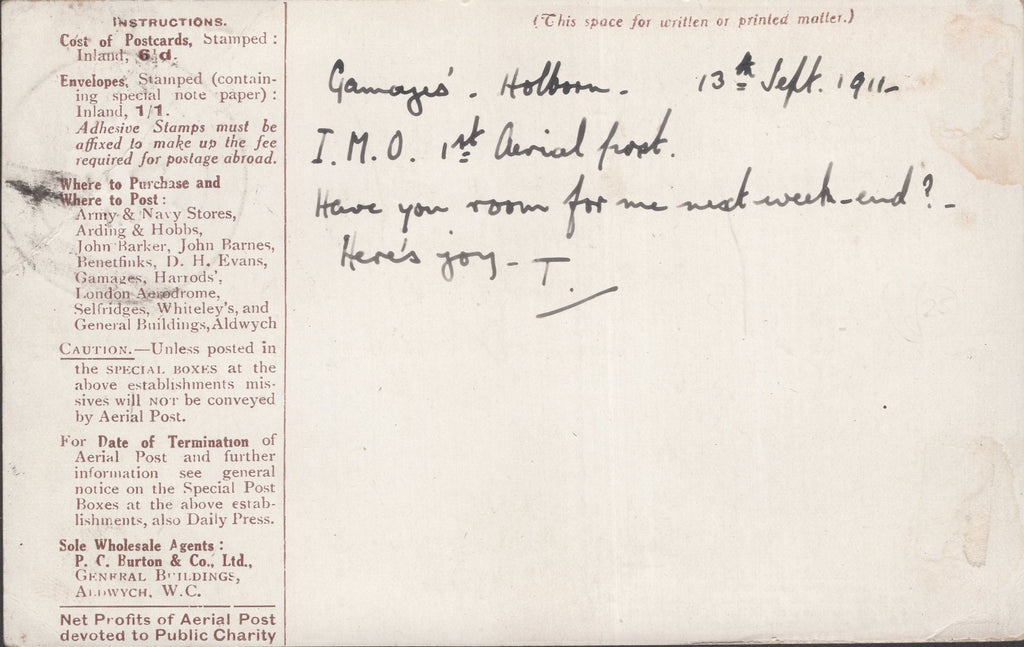 INSTRUCTIONS.
Cost of Postcards, Stamped :
Inland, 6½d.
Envelopes, Stamped (contain-
ing special note paper) :
Inland, 1/1.
Adhesive Stamps must be
affixed to make up the fee
required for postage abroad.
Where to Purchase and
Where to Post :
Army & Navy Stores,
Arding & Hobbs,
John Barker, John Barnes,
Benetfinks, D. H. Evans,
Gamages, Harrods',
London Aerodrome,
Selfridges, Whiteley's, and
General Buildings, Aldwych
CAUTION.—Unless posted in
the SPECIAL BOXES at the
above establishments mis-
sives will NOT be conveyed
by Aerial Post.
For Date of Termination of
Aerial Post and further
information see general
notice on the Special Post
Boxes at the above estab-
lishments, also Daily Press.
Sole Wholesale Agents :
P. C. Burton & Co., Ltd.,
GENERAL BUILDINGS,
ALDWYCH, W.C.
Net Profits of Aerial Post
devoted to Public Charity
(This space for written or printed matter.)
Gamages'. Holborn. 13th Sept. 1911-
I.M.O. 1st Aerial post.
Have you room for me next week-end? -
Here's joy - T.